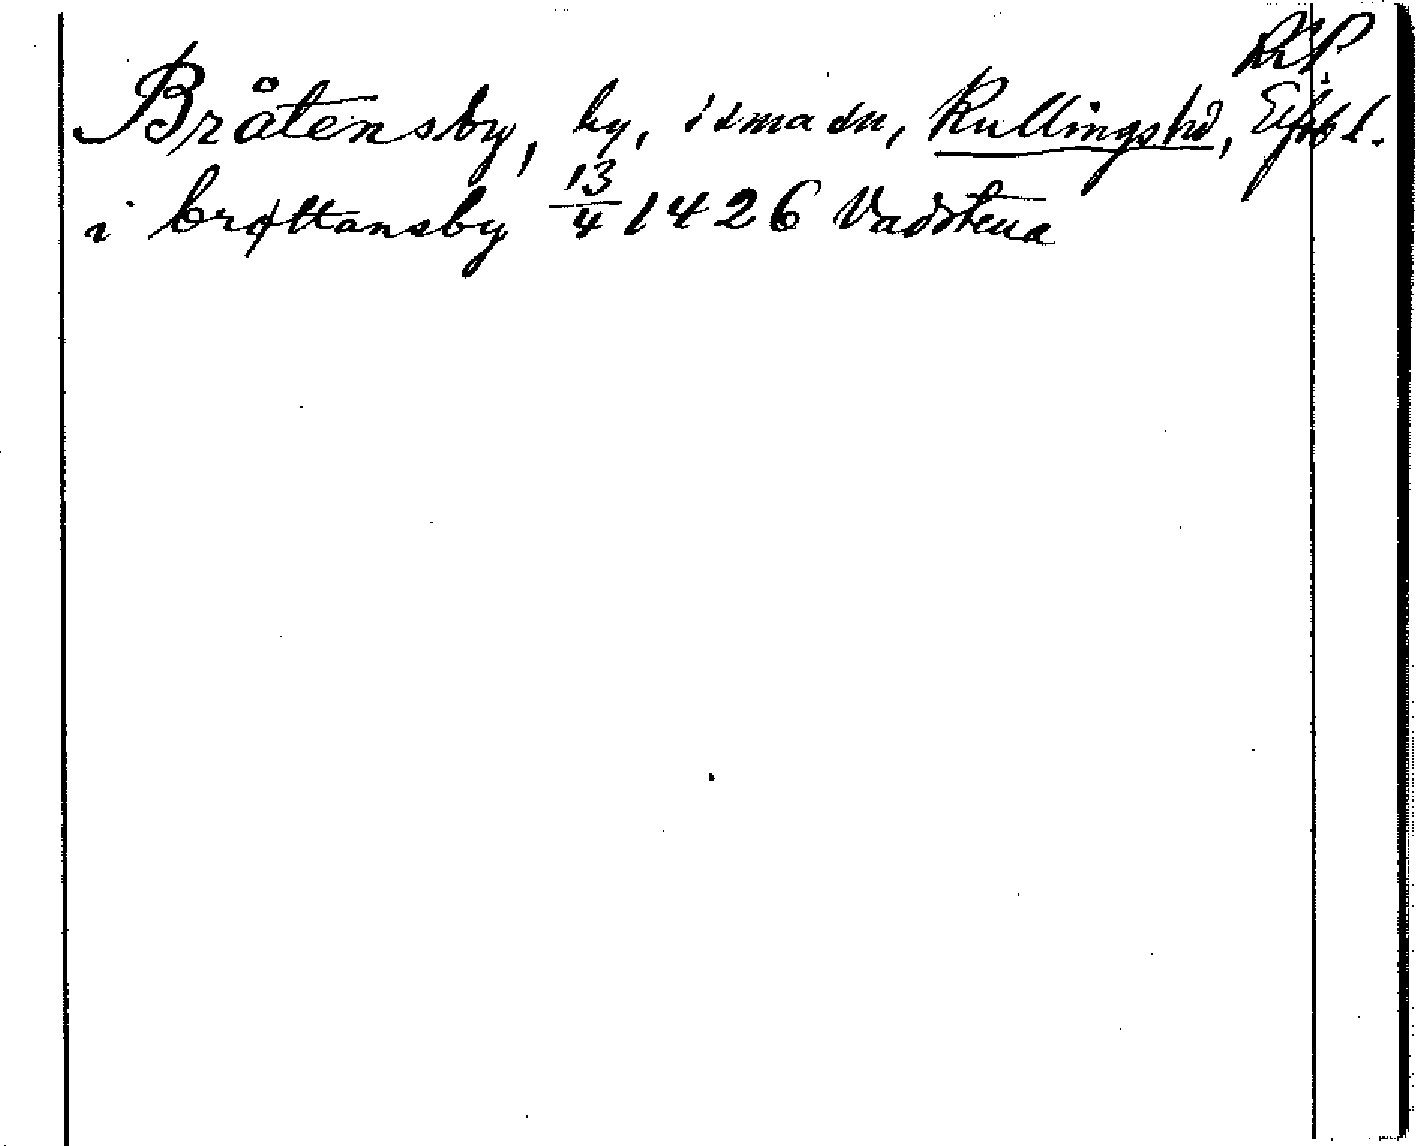 RAP
Bråtensby, by, i sma sn, Kullingshd, Elfsb l.
i brøttansby 13/4 1426 Vadstena